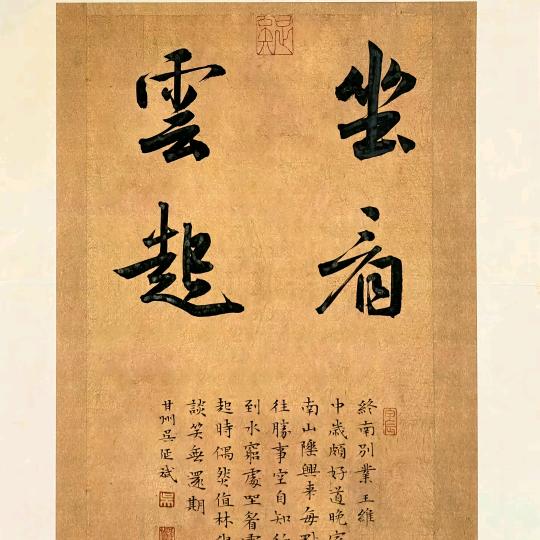 坐看
雲起
終南別業王維
中歲頗好道晚家
南山陲興来每獨
往勝事空自知行
到水窮處坐看雲
起時偶然值林叟
談笑無還期
甘州吳延斌